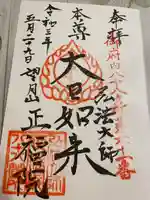 奉拝
弘法大師
本尊
大日如来
令和三年
五月二十九日
望月山 正福院